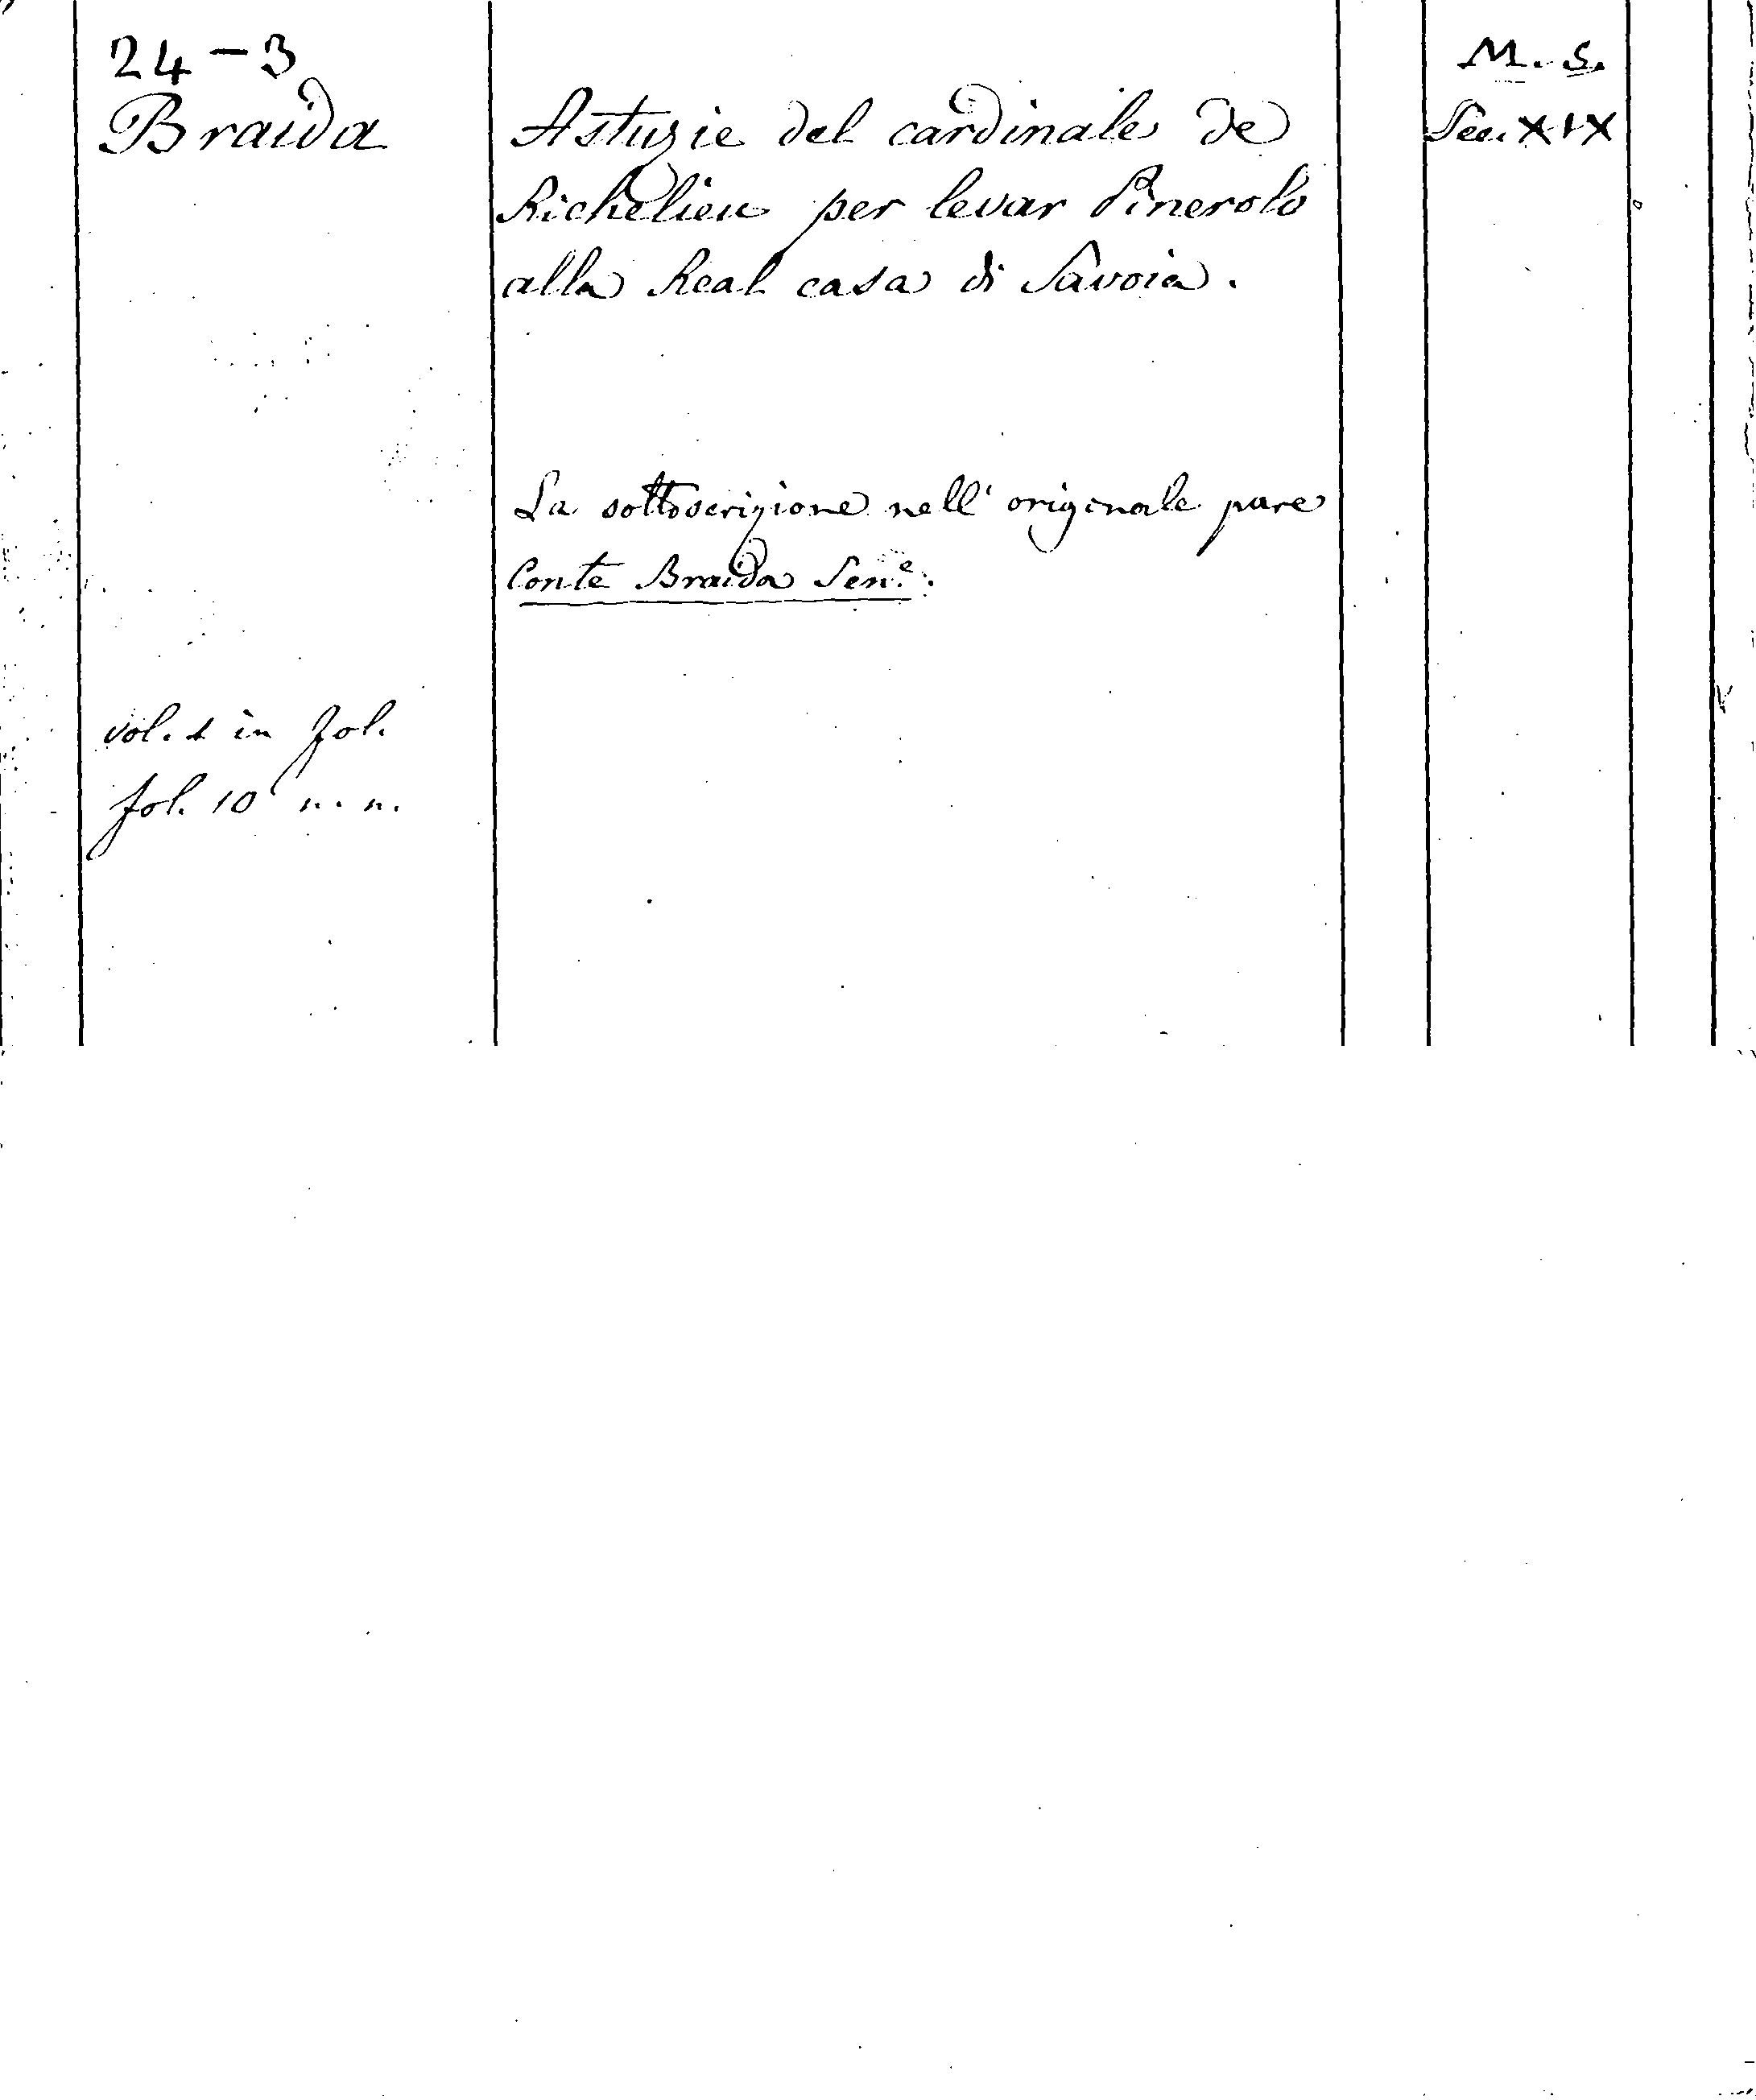 24-3
Braida
Astuzie del cardinale de
Richelieu per levar Pinerolo
alla Real casa di Savoia.
La sottoscrizione nell' originale pare
Conte Braida Sen.e.
vol. 1 in fol.
fol. 10 n. n.
M. S.
Sec. XIX